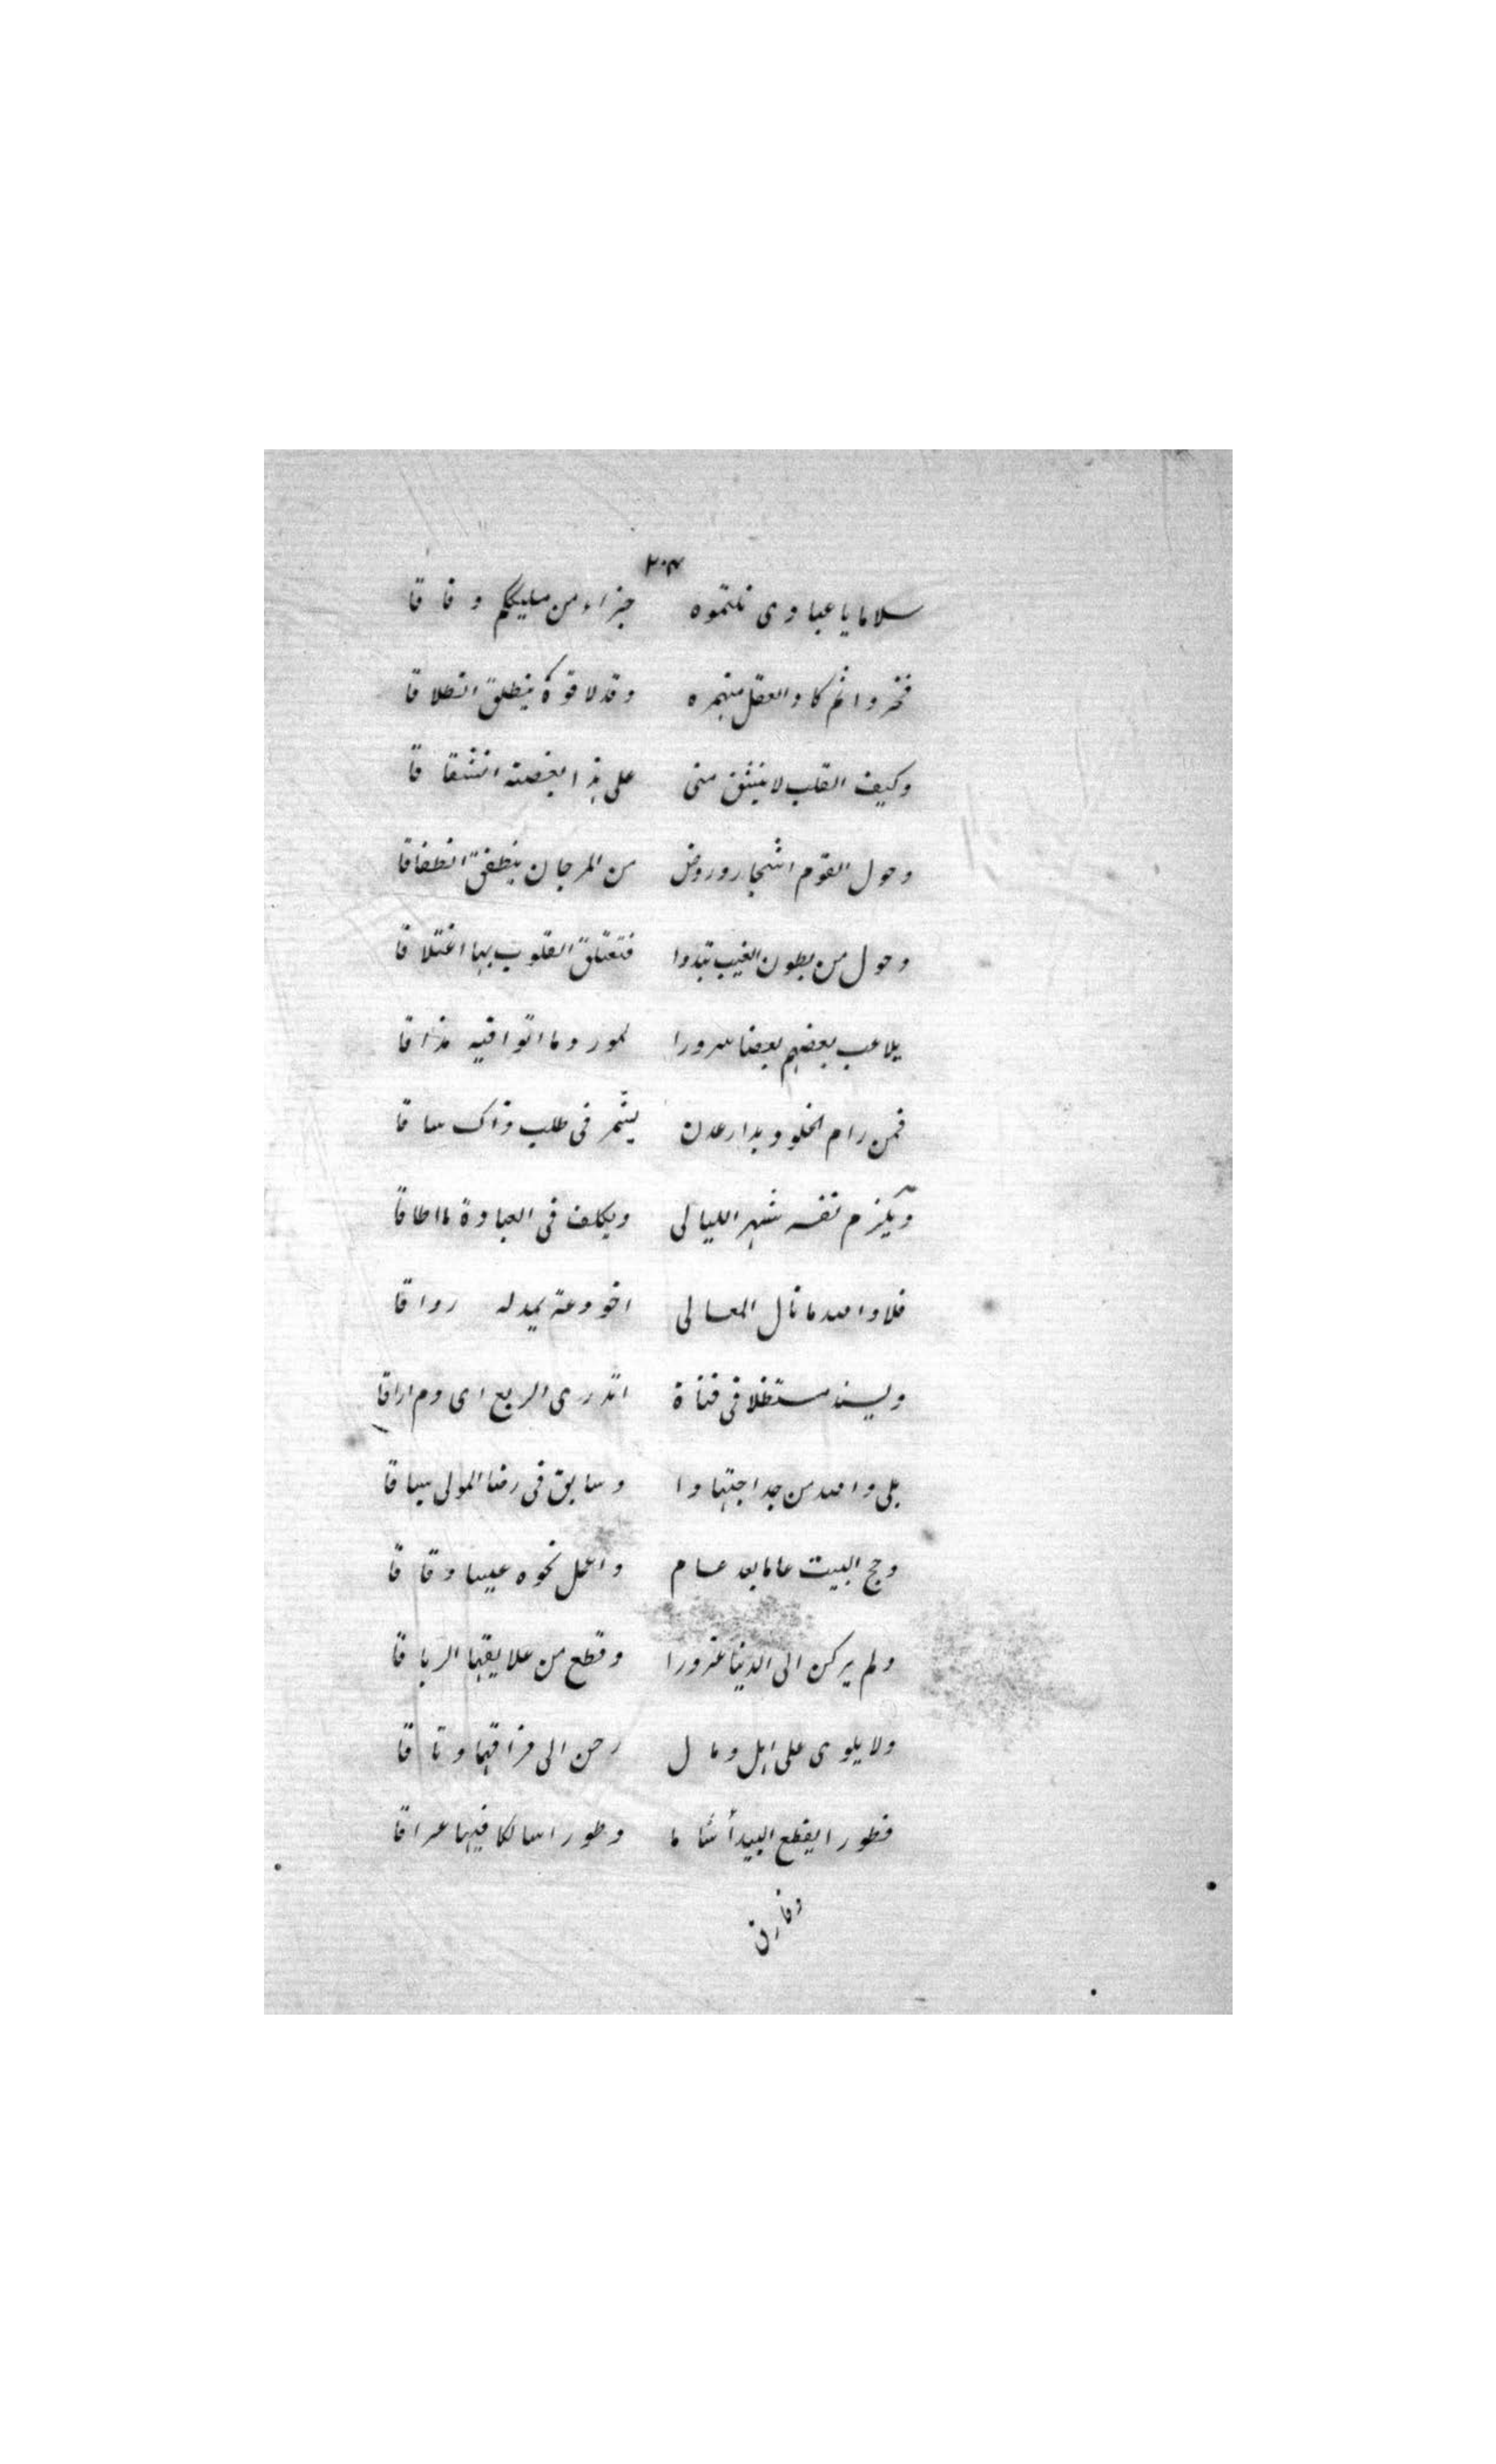 ٢٠٣
سلاما يا عبادى نلتموه جزاء من مليككم وفاقا
فخروا ثم كاد العقل منهم وقد لاقوه ينطلق انطلاقا
وكيف القلب لا ينشق منى على هذا بغصته انشقاقا
وحول القوم اشجار وروض من المرجان ينطفق انطفاقا
وحول من بطون الغيب تبدوا فتعتلق القلوب بها اعتلاقا
يلاعب بعضهم بعضا سرورا لحور وما اتوا فيه مذاقا
فمن رام الخلود بدار عدن يشمر فى طلب ذاك ساقا
ويلزم نفسه سهر الليالى ويكلف فى العبادة ما اطاقا
فلا والله ما نال المعالى اخو دعة يمد له رواقا
ويسند مستظلا فى فناة اتدرى الريع اى دم اراقا
بلى والله من جد اجتهادا وسابق فى رضا المولى سباقا
وحج البيت عاما بعد عام واعمل نحوه عيسا دقاقا
ولم يركن الى الدنيا غرورا وقطع من علايقها الرباقا
ولا يلوى على اهل ومال حن الى فراقهما وتاقا
فطورا يقطع البيدأ شاما وطورا سالكا فيها عراقا
وفارق